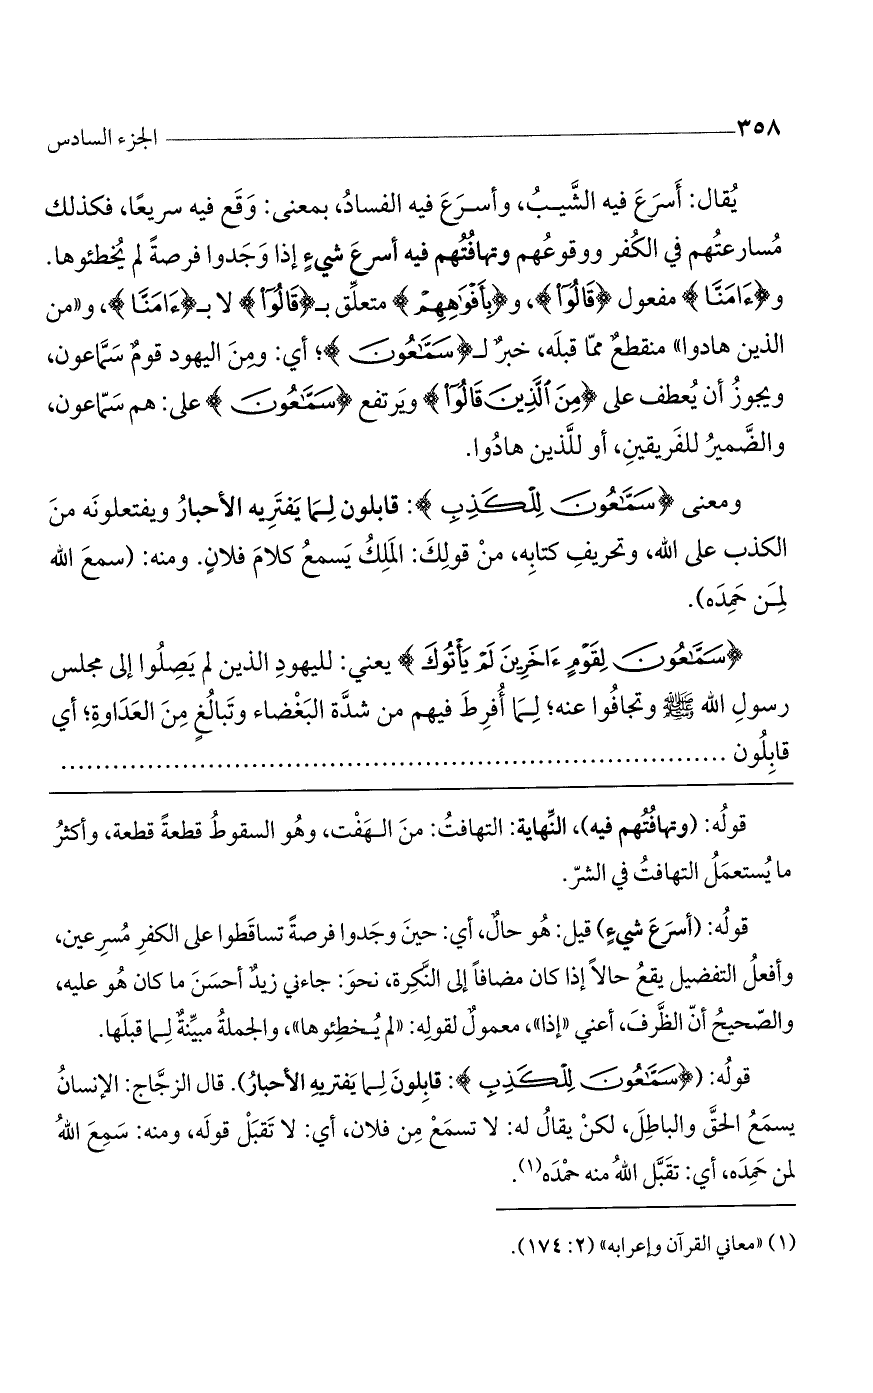 ٣٥٨ الجزء السادس
يُقال: أَسرَعَ فيه الشَّيبُ، وأسرَعَ فيه الفسادُ، بمعنى: وَقَع فيه سريعًا، فكذلك
مُسارعتُهم في الكُفر ووقوعُهم وتهافُتُهم فيه أسرعَ شيءٍ إذا وَجَدوا فرصةً لم يُخطئوها.
و﴿ءَامَنَّا﴾ مفعول ﴿قَالُوٓا۟﴾، و﴿بِأَفْوَٰهِهِمْ﴾ متعلِّق بـ﴿قَالُوٓا۟﴾ لا بـ﴿ءَامَنَّا﴾، و«من
الذين هادوا» منقطعٌ ممّا قبلَه، خبرٌ لـ﴿سَمَّٰعُونَ﴾؛ أي: ومِنَ اليهود قومٌ سَمَّاعون،
ويجوزُ أن يُعطف على ﴿مِنَ ٱلَّذِينَ قَالُوٓا۟﴾ ويَرتفع ﴿سَمَّٰعُونَ﴾ على: هم سَمّاعون،
والضَّميرُ للفَريقينِ، أو للَّذين هادُوا.
ومعنى ﴿سَمَّٰعُونَ لِلْكَذِبِ﴾: قابلون لِـمَا يَفتَرِيه الأحبارُ ويفتعلونَه منَ
الكذب على الله، وتحريفِ كتابِه، منْ قولِكَ: الَملِكُ يَسمعُ كلامَ فلانٍ. ومنه: (سمعَ الله
لِمَـن حَمِدَه).
﴿سَمَّٰعُونَ لِقَوْمٍ ءَاخَرِينَ لَمْ يَأْتُوكَ﴾ يعني: لليهودِ الذين لم يَصِلُوا إلى مجلس
رسولِ الله ﷺ وتجافُوا عنه؛ لِـمَا أُفرِطَ فيهم من شدَّة البَغْضاء وتَبالُغٍ مِنَ العَدَاوةِ؛ أي
قابِلُون ..............................................................................
قولُه: (وتهافُتُهم فيه)، النِّهاية: التهافتُ: منَ الـهَفْت، وهُو السقوطُ قطعةً قطعة، وأكثرُ
ما يُستعمَلُ التهافتُ في الشرّ.
قولُه: (أسرَعَ شيءٍ) قيل: هُو حالٌ، أي: حينَ وجَدوا فرصةً تساقَطوا على الكفرِ مُسرِعين،
وأفعلُ التفضيل يقعُ حالاً إذا كان مضافاً إلى النَّكِرة، نحوَ: جاءني زيدٌ أحسَنَ ما كان هُو عليه،
والصّحيحُ أنّ الظَّرفَ، أعني «إذا»، معمولٌ لقولِه: «لم يُـخطِئوها»، والجملةُ مبيِّنةٌ لِـما قبلَها.
قولُه: (﴿سَمَّٰعُونَ لِلْكَذِبِ﴾: قابِلونَ لِـما يَفتريهِ الأحبارُ). قال الزجَّاج: الإنسانُ
يسمَعُ الحقَّ والباطِلَ، لكنْ يقالُ له: لا تسمَعْ مِن فلان، أي: لا تَقبَلْ قولَه، ومنه: سَمِعَ اللهُ
لمن حَمِدَه، أي: تقَبَّل اللهُ منه حمْدَه(١).
(١) «معاني القرآن وإعرابه» (٢: ١٧٤).